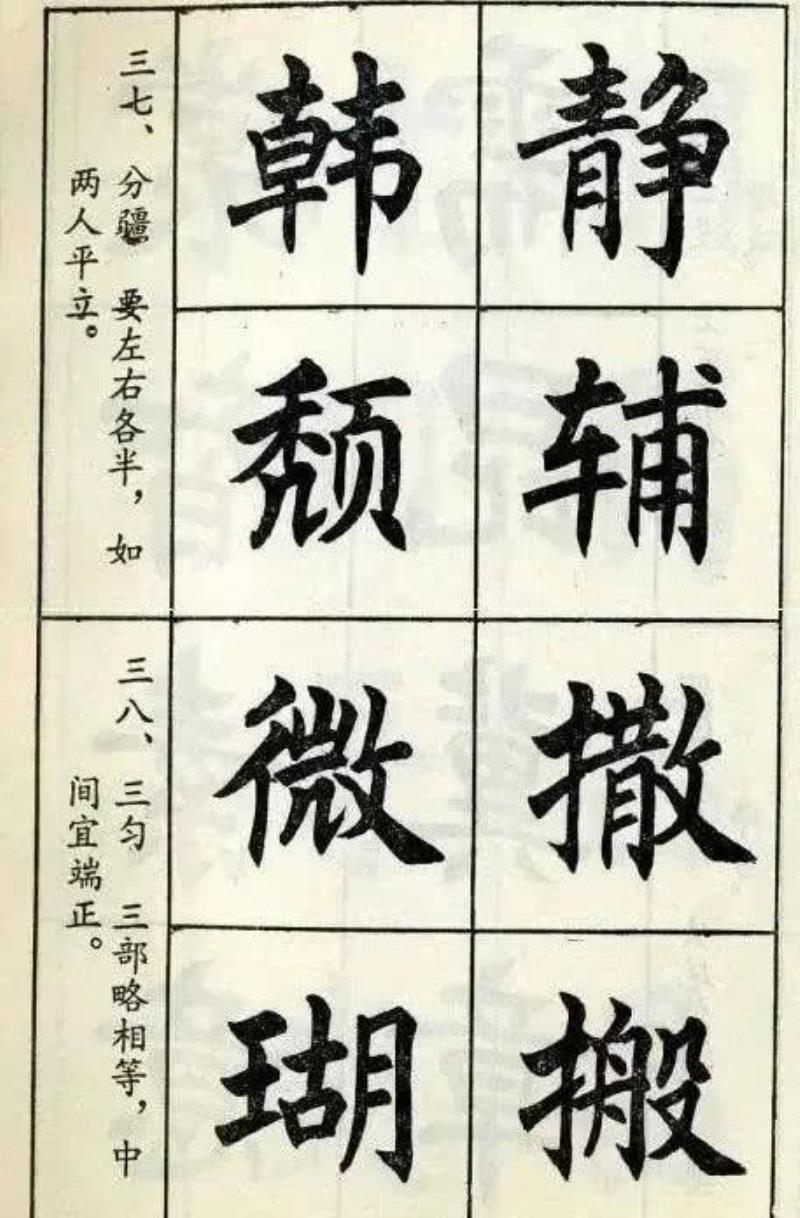 静韩
辅颓
三七、分疆 要左右各半，如
两人平立。
撒微
搬瑚
三八、三匀 三部略相等，中
间宜端正。